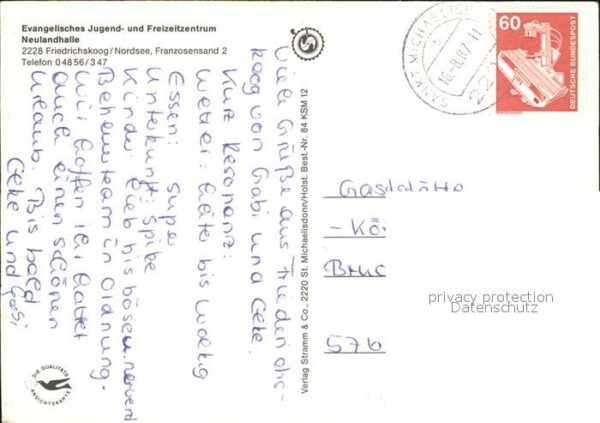 Evangelisches Jugend- und Freizeitzentrum
Neulandhalle
2228 Friedrichskoog/Nordsee, Franzosensand 2
Telefon 0 48 56/3 47
Viele Grüße aus Friedrichs-
koog von Gabi und Elke.
Kurz Resonanz:
Wetter: heiter bis wolkig
Essen: super
Unterkunft: spitze
Kinder: lieb bis böse u. nervend
Betreuerteam in Ordnung.
Wir hoffen ihr hattet
auch einen schönen
Urlaub. Bis bald
Elke und Gabi
DIE QUALITÄTS
ANSICHTSKARTE
Verlag Stramm & Co., 2220 St. Michaelisdonn/Holst. Best.-Nr. 84 KSM 12
SANKT MICHAELISD
16.-8.87-11
222
60
DEUTSCHE BUNDESPOST
Gaststätte
- Kö
Bruc
576
privacy protection
Datenschutz